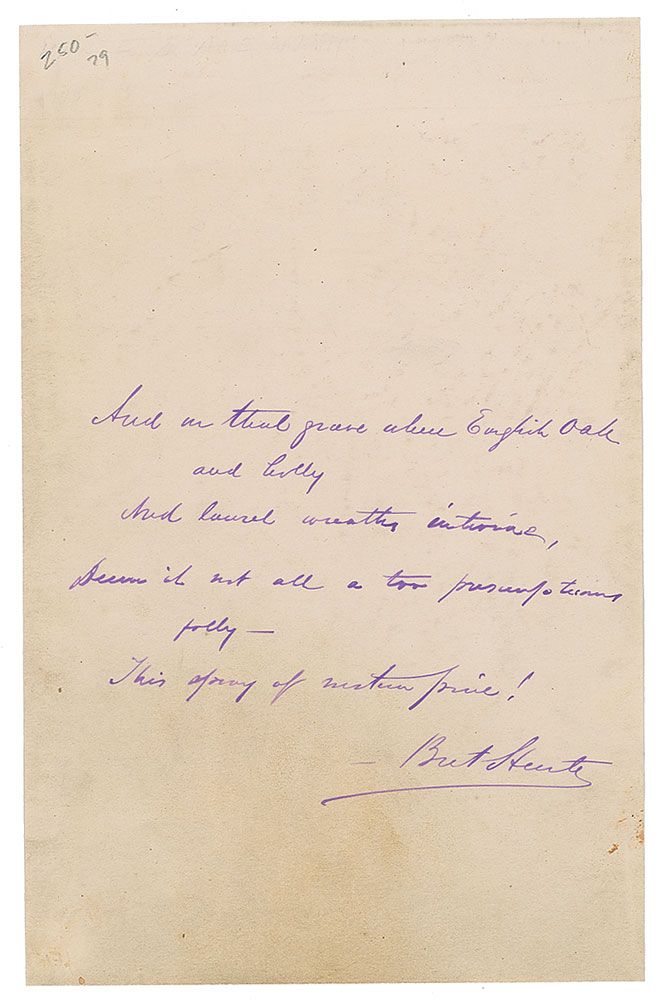 250-
79
And on that grave where English Oak
and holly
And laurel wreaths intwine,
Deem it not all a too presumptuous
folly —
This spray of western pine!
— Bret Harte